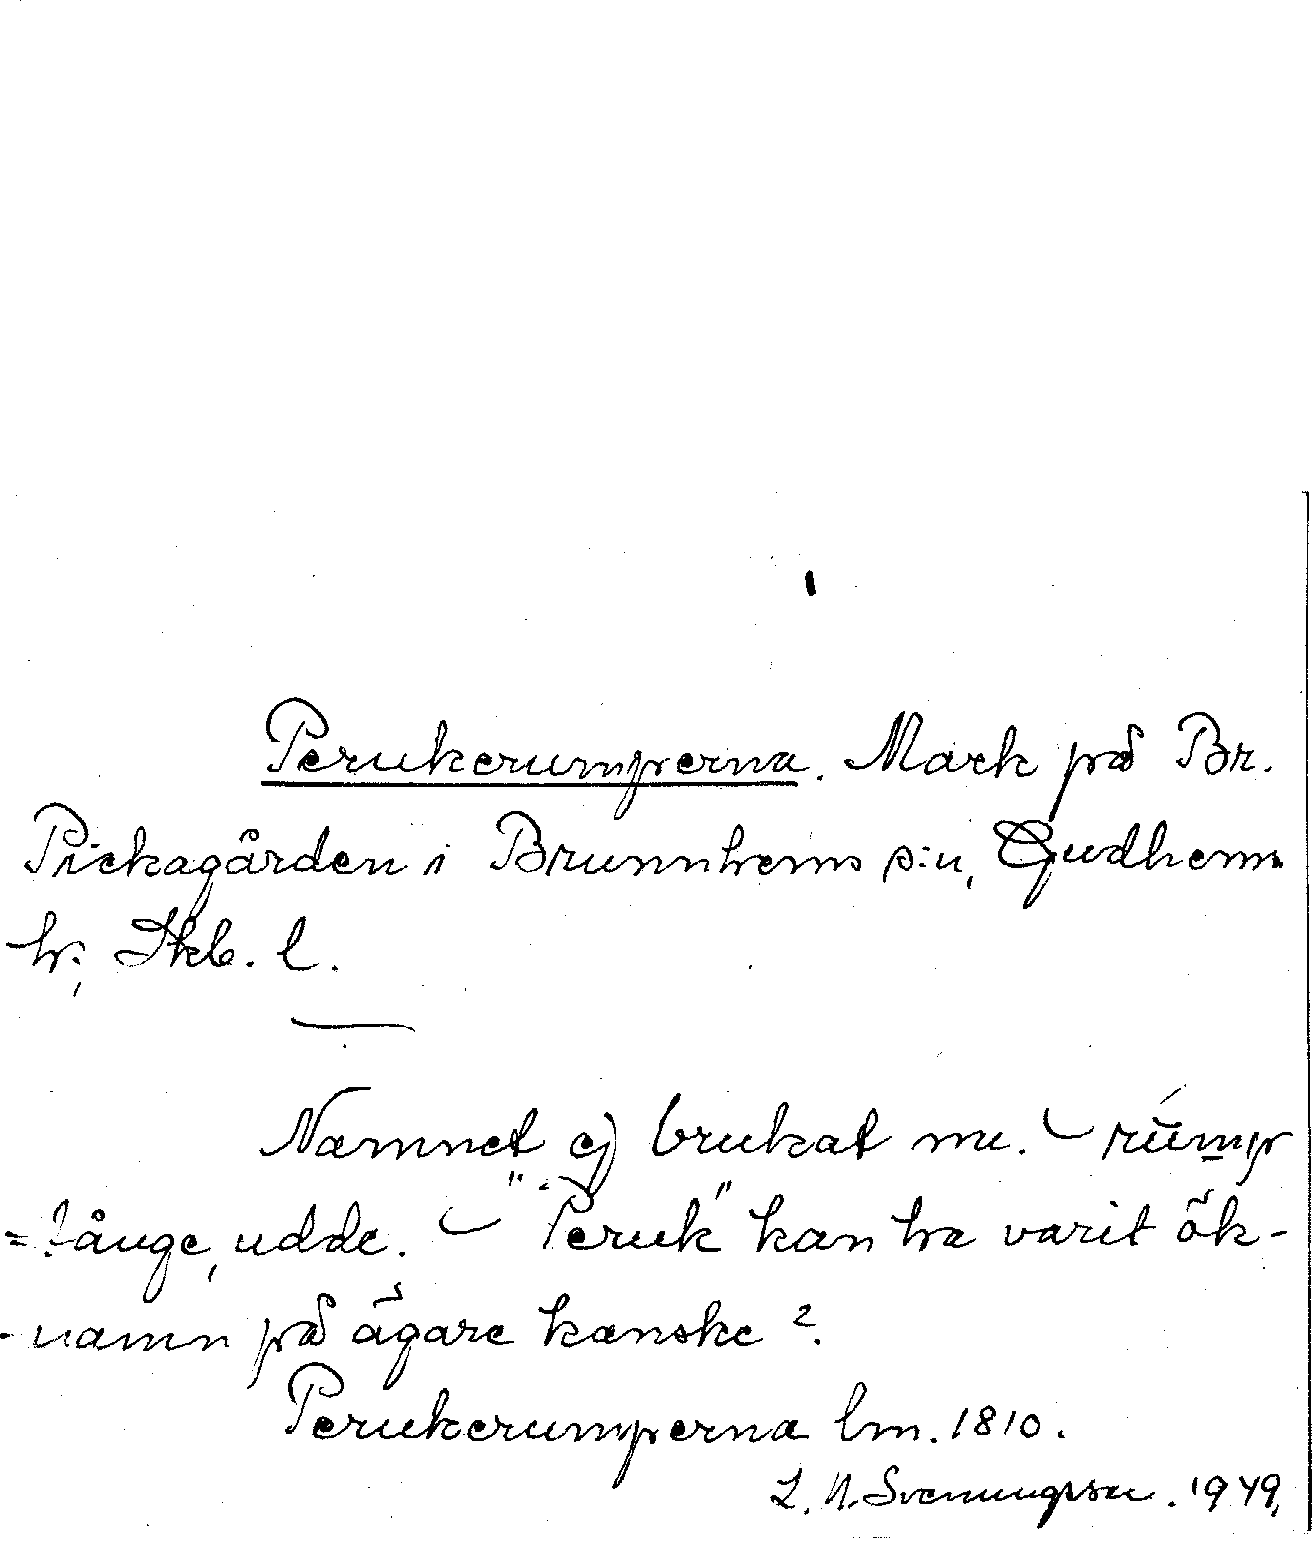 Perukerumperna. Mark på Br.
Pickagården i Brunnhems s:n, Gudhems
hr., Skb. l.
Namnet ej brukat nu. – rump
= tånge, udde. – "Peruk" kan ha varit ök-
-namn på ägare kanske?.
Perukerumperna lm. 1810.
L. N. Svenungsson. 1949.